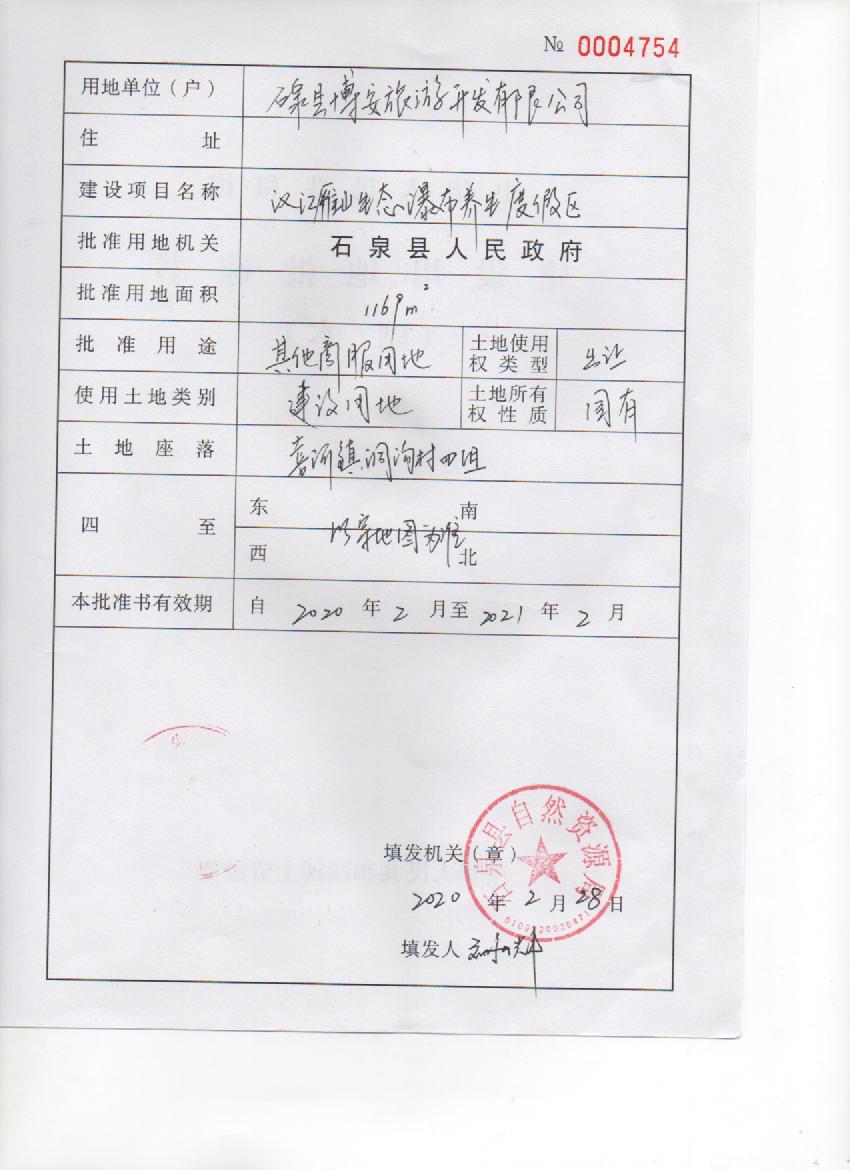 № 0004754
用地单位(户) 石泉县博安旅游开发有限公司
住 址
建设项目名称 汉江雁山生态瀑布养生度假区
批准用地机关 石泉县人民政府
批准用地面积 1169m²
批准用途 其他商服用地 土地使用权类型 出让
使用土地类别 建设用地 土地所有权性质 国有
土地座落 喜河镇洞沟村四组
四至 东 南
以宗地图为准
西 北
本批准书有效期 自 2020 年 2 月至 2021 年 2 月
石泉县自然资源局
填发机关(章)
2020 年 2 月 28 日
填发人